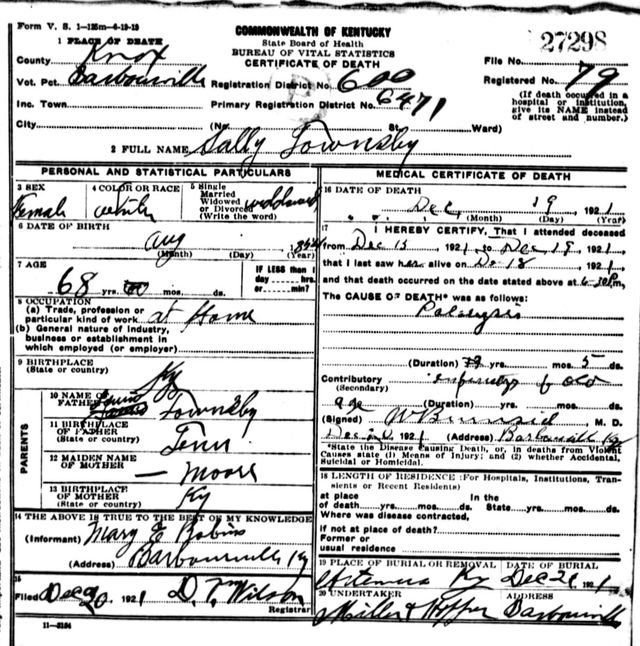 Form V. S. 1-125m-4-19-19
COMMONWEALTH OF KENTUCKY
State Board of Health
BUREAU OF VITAL STATISTICS
CERTIFICATE OF DEATH
27298
1 PLACE OF DEATH
County Knox
File No.
Vot. Pct. Barbourville Registration District No. 600
Registered No. 79
Inc. Town Primary Registration District No. 6471
(If death occurred in a hospital or institution, give its NAME instead of street and number.)
City (No. St. Ward)
2 FULL NAME Sally Townsby
PERSONAL AND STATISTICAL PARTICULARS
3 SEX Female
4 COLOR OR RACE white
5 Single Married Widowed or Divorced (Write the word)
6 DATE OF BIRTH
Aug 185
(Month) (Day) (Year)
7 AGE
68 yrs. mos. ds.
IF LESS than 1 day hrs. or min.?
8 OCCUPATION
(a) Trade, profession or particular kind of work at Home
(b) General nature of Industry, business or establishment in which employed (or employer)
9 BIRTHPLACE
(State or country) Ky
PARENTS
10 NAME OF FATHER Townsby
11 BIRTHPLACE OF FATHER
(State or country) Tenn
12 MAIDEN NAME OF MOTHER — Moore
13 BIRTHPLACE OF MOTHER
(State or country) Ky
14 THE ABOVE IS TRUE TO THE BEST OF MY KNOWLEDGE
(Informant) Mary E
(Address) Barbourville Ky
15
Filed Dec 20 1921 D. Wilson
Registrar
11-3184
MEDICAL CERTIFICATE OF DEATH
16 DATE OF DEATH
Dec 19 1921
(Month) (Day) (Year)
17 I HEREBY CERTIFY, That I attended deceased
from Dec 15 1921 to Dec 19 1921
that I last saw her alive on 18 1921
and that death occurred on the date stated above at m.
The CAUSE OF DEATH* was as follows:
Paralysis
(Duration) yrs. mos. 5 ds.
Contributory of old
(Secondary)
age (Duration) yrs. mos. ds.
(Signed) M. D.
Dec 20 1921 (Address) Barbourville Ky
*State the Disease Causing Death, or, in deaths from Violent Causes state (1) Means of Injury; and (2) whether Accidental, Suicidal or Homicidal.
18 LENGTH OF RESIDENCE (For Hospitals, Institutions, Transients or Recent Residents)
at place of death yrs. mos. ds. In the State yrs. mos. ds.
Where was disease contracted,
if not at place of death?
Former or usual residence
19 PLACE OF BURIAL OR REMOVAL DATE OF BURIAL
Artemus Ky Dec 21 1921
20 UNDERTAKER ADDRESS
Miller & Hopper Barbourville